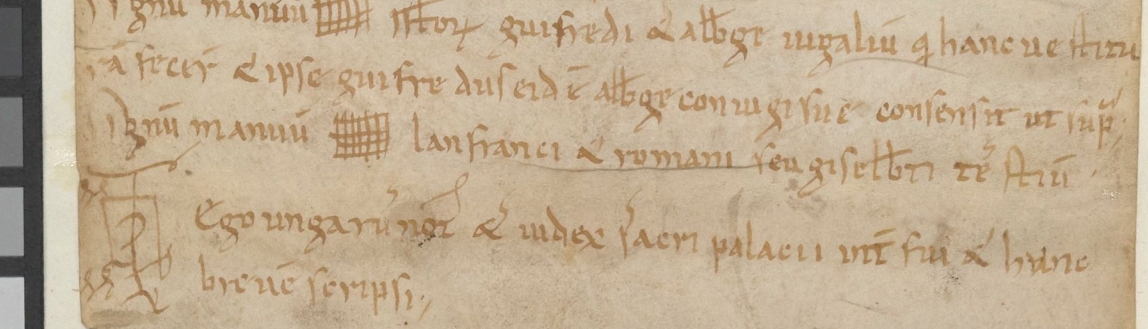 Signū manuū istoꝝ guifredi & alb̄ge iugaliū q̄ hanc uestitu
rā fecer̄ & ipse guifredus eidē alb̄ge coniugi sue consensit ut sup̄
Signū manuū lanfranci & romani seu giselb̄ti testiū
Ego ungarus not̄ & iudex sacri palacii int̄fui & hunc
breuē scripsi